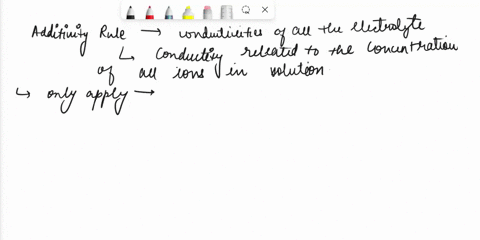 Additivity Rule → conductivities of all the electrolyte
↳ conductivity related to the concentration
of all ions in solution
↳ only apply →